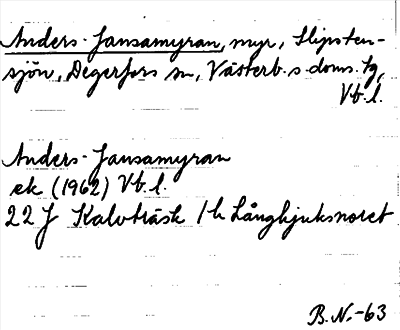 Anders-Jansamyran, myr, Slipsten-
sjön, Degerfors sn, Västerb. s. doms. tg,
Vb. l.
Anders-Jansamyran
ek (1962) Vb. l.
22 J Kalvträsk 1 h Långhjuksnoret
B.N.-63